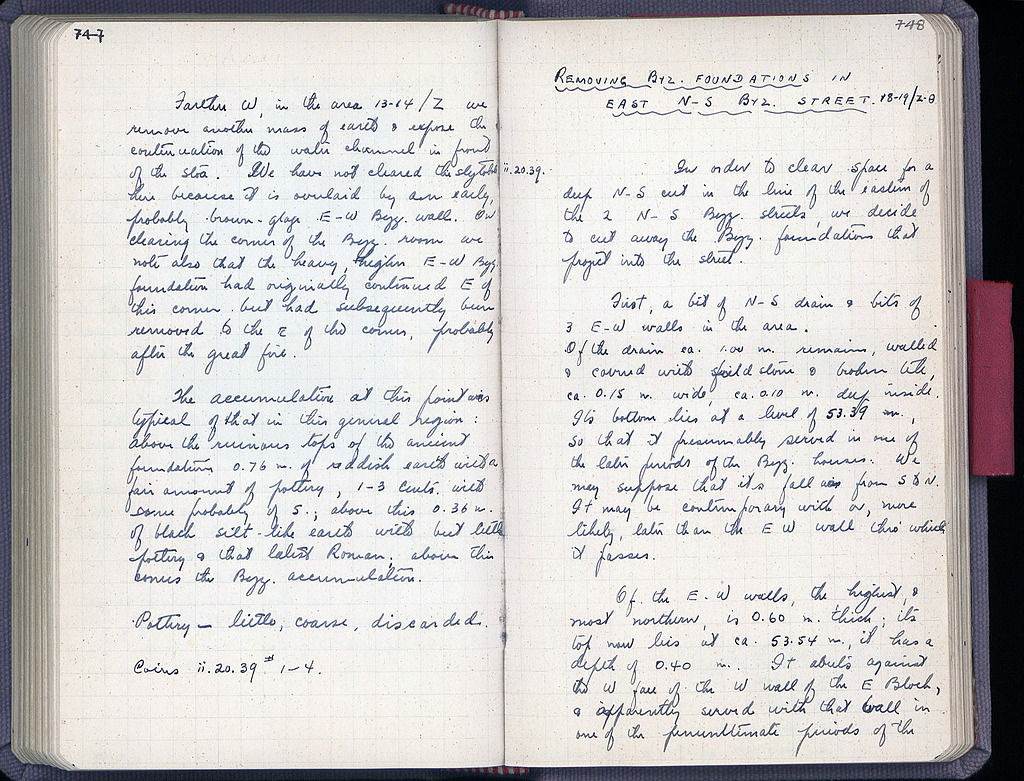 747
Farther W, in the area 13-14/Z we
remove another mass of earth & expose the
continuation of the water channel in front
of the stoa. We have not cleared the stylobate
here because it is overlaid by an early,
probably brown-glaze E-W Byz. wall. On
clearing the corner of the Byz. room we
note also that the heavy, higher E-W Byz
foundation had originally continued E of
this corner but had subsequently been
removed to the E of the corner, probably
after the great fire.
The accumulation at this point was
typical of that in this general region:
above the ruinous tops of the ancient
foundations 0.76 m. of reddish earth with a
fair amount of pottery, 1-3 cents. with
some probably of 5.; above this 0.36 m.
of black silt-like earth with but little
pottery & that latest Roman; above this
comes the Byz. accumulation.
Pottery — little, coarse, discarded.
Coins ii.20.39 # 1-4.
748
REMOVING BYZ. FOUNDATIONS IN
EAST N-S BYZ. STREET. 18-19/Z-Θ
ii.20.39.
In order to clear space for a
deep N-S cut in the line of the eastern of
the 2 N-S Byz. streets, we decide
to cut away the Byz. foundations that
project into the street.
First, a bit of N-S drain & bits of
3 E-W walls in the area.
Of the drain ca. 1.00 m. remains, walled
& covered with field stone & broken tile,
ca. 0.15 m. wide, ca. 0.10 m. deep inside.
Its bottom lies at a level of 53.39 m.,
so that it presumably served in one of
the later periods of the Byz. houses. We
may suppose that its fall was from S to N.
It may be contemporary with or, more
likely, later than the E W wall thro' which
it passes.
Of the E-W walls, the highest, &
most northern, is 0.60 m. thick; its
top now lies at ca. 53.54 m., it has a
depth of 0.40 m. It abuts against
the W face of the W wall of the E Block,
& apparently served with that wall in
one of the penultimate periods of the